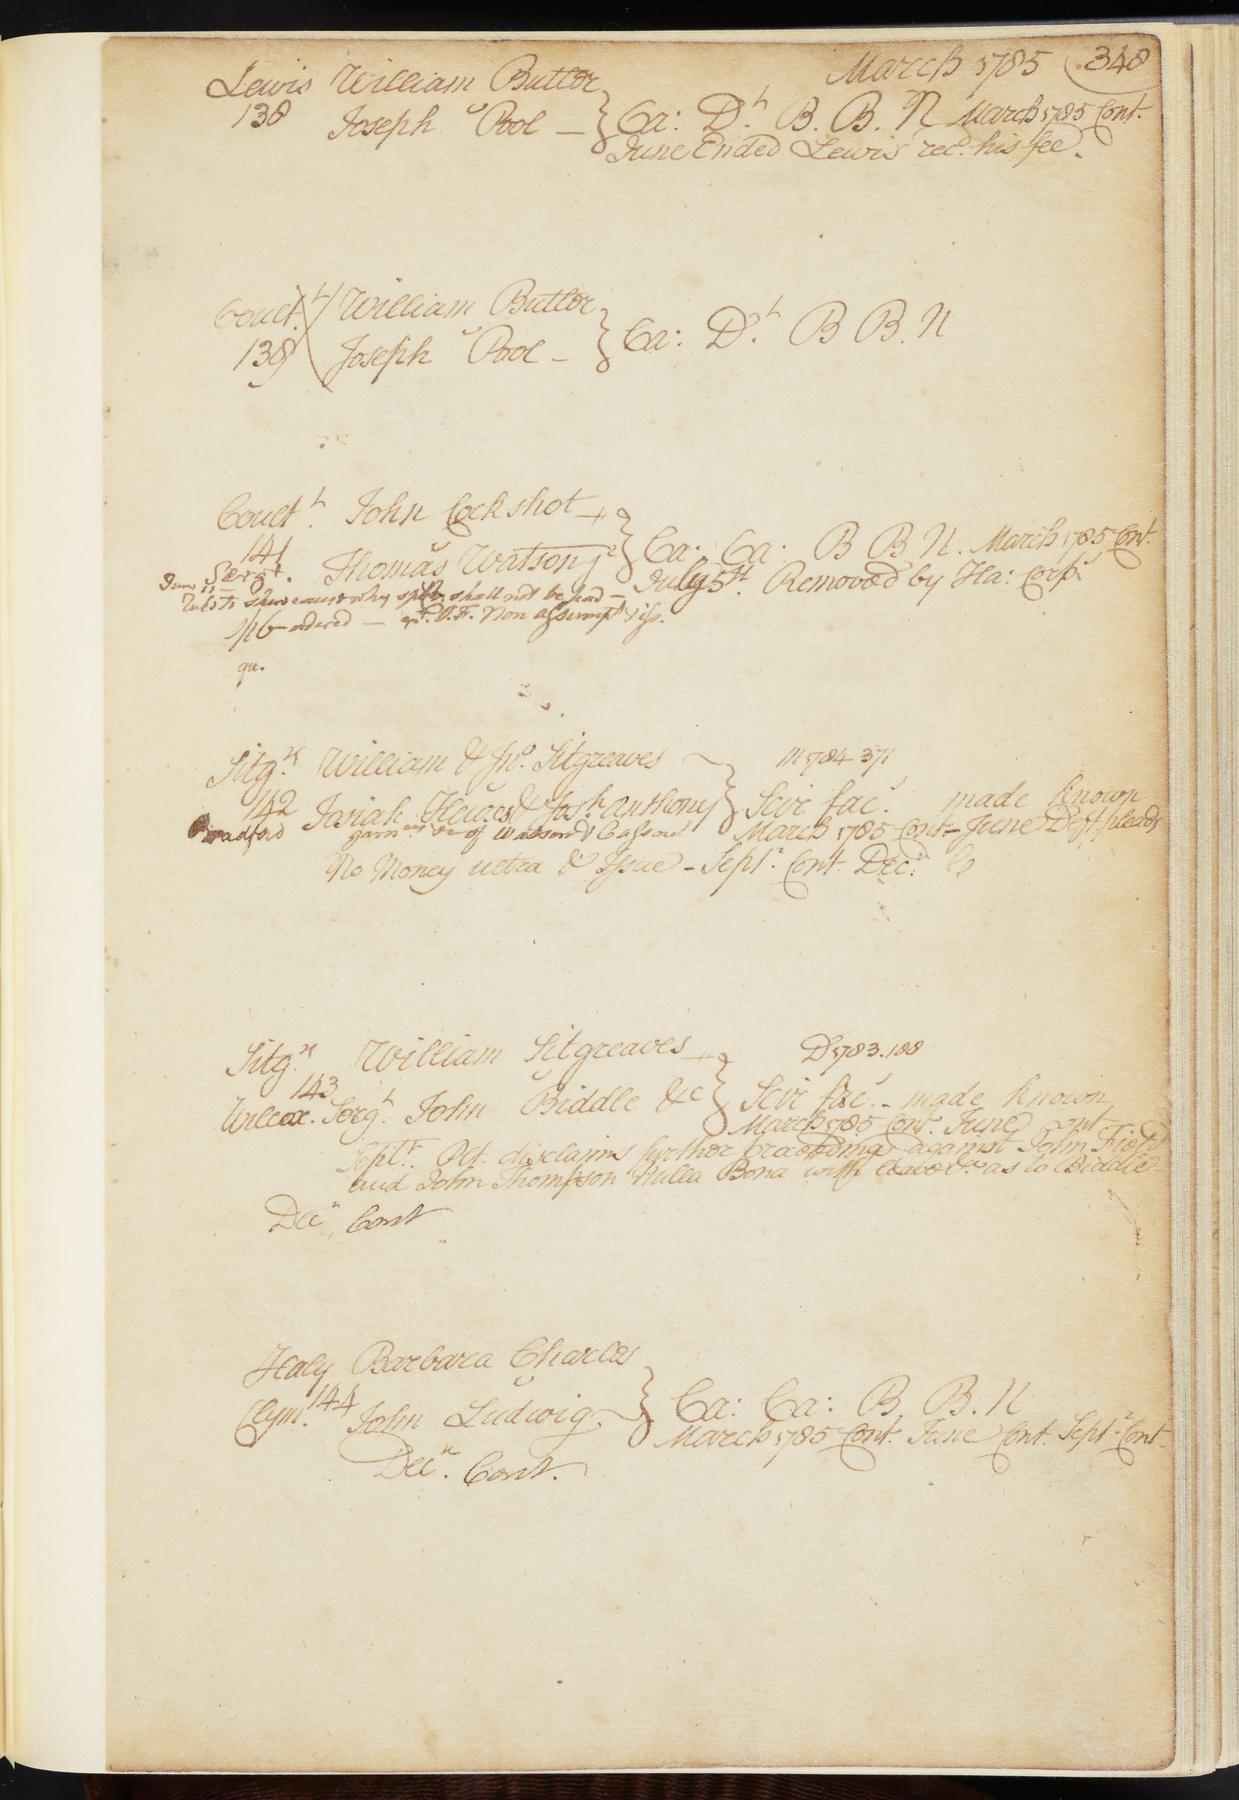 March 1785 348
Lewis William Butler
138 Joseph Pool — Ca: Dt. B. B. N March 1785 Cont.
June Ended Lewis rec.d his fee.
Coult. William Butler
139 Joseph Pool — Ca: Dt. B B. N
Coult. John Cockshot
141 Thomas Watson Ca: Ca: B B N. March 1785 Cont.
Sergt. July 5th. Removed by Ha: Corp:
June 11 — Rule to shew cause why spl. shall not be had —
n. a. f. Non assumpt & iss.
qu.
Sitg.s William & Jno. Sitgreaves M 1784 371
142 Josiah Hewes & Jos.h Anthony Scir fac. made known
Bradford garn of Watson & Cassoul March 1785 Cont — June Deft. pleads
No Money ultra & Issue — Sept.r Cont Dec.r Co
Sitg.s William Sitgreaves D 1783. 188
143 John Biddle &c Scir fac. - made known
Wilcox. Serg.t March 1785 Cont. June Cont
Sept.r Plt. disclaims further proceeding against John Field
and John Thompson Nulla Bona with leave &c as to Biddle
Dec.r Cont
Haly Barbara Charles
144 Ca: Ca: B B. N
Clym. John Ludwig March 1785 Cont. June Cont. Sept.r Cont.
Dec.r Cont.